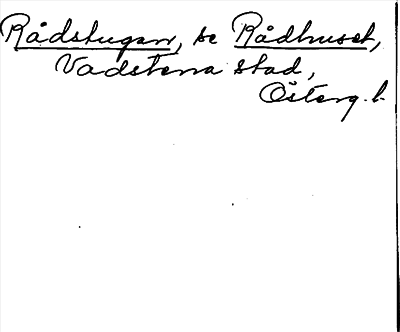 Rådstugan, se Rådhuset,
Vadstena stad,
Österg. l.